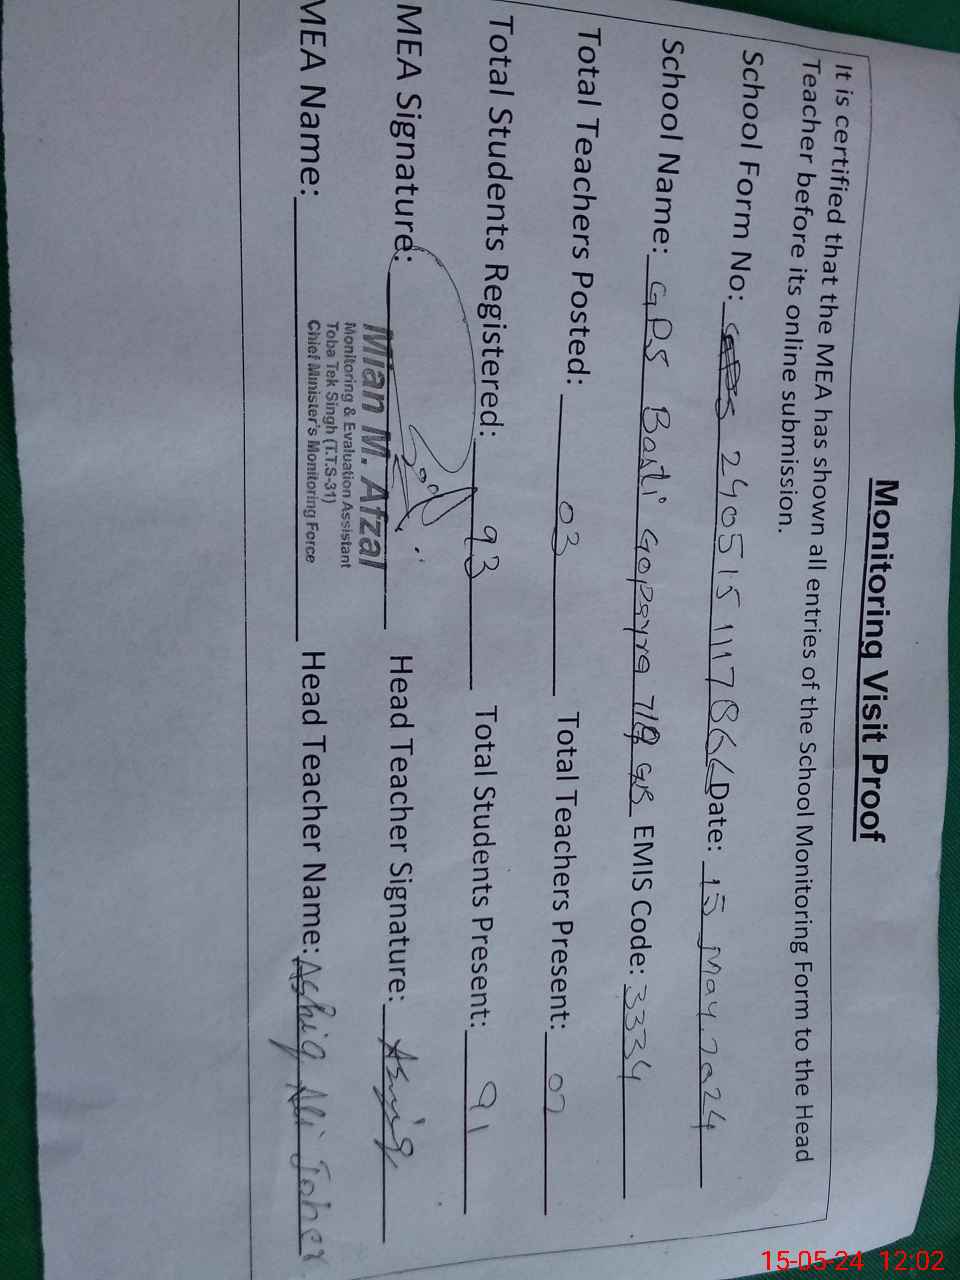 Monitoring Visit Proof
It is certified that the MEA has shown all entries of the School Monitoring Form to the Head
Teacher before its online submission.
School Form No: 240515111786 Date: 15 May. 2024
School Name: GPS Basti Gopayra 719 GB EMIS Code: 3334
Total Teachers Posted: 03 Total Teachers Present: 02
Total Students Registered: 93 Total Students Present: 91
MEA Signature: Head Teacher Signature:
Mian M. Afzal
Monitoring & Evaluation Assistant
Toba Tek Singh (T.T.S-31)
Chief Minister's Monitoring Force
MEA Name: Head Teacher Name: Ashiq Ali
15-05-24 12:02